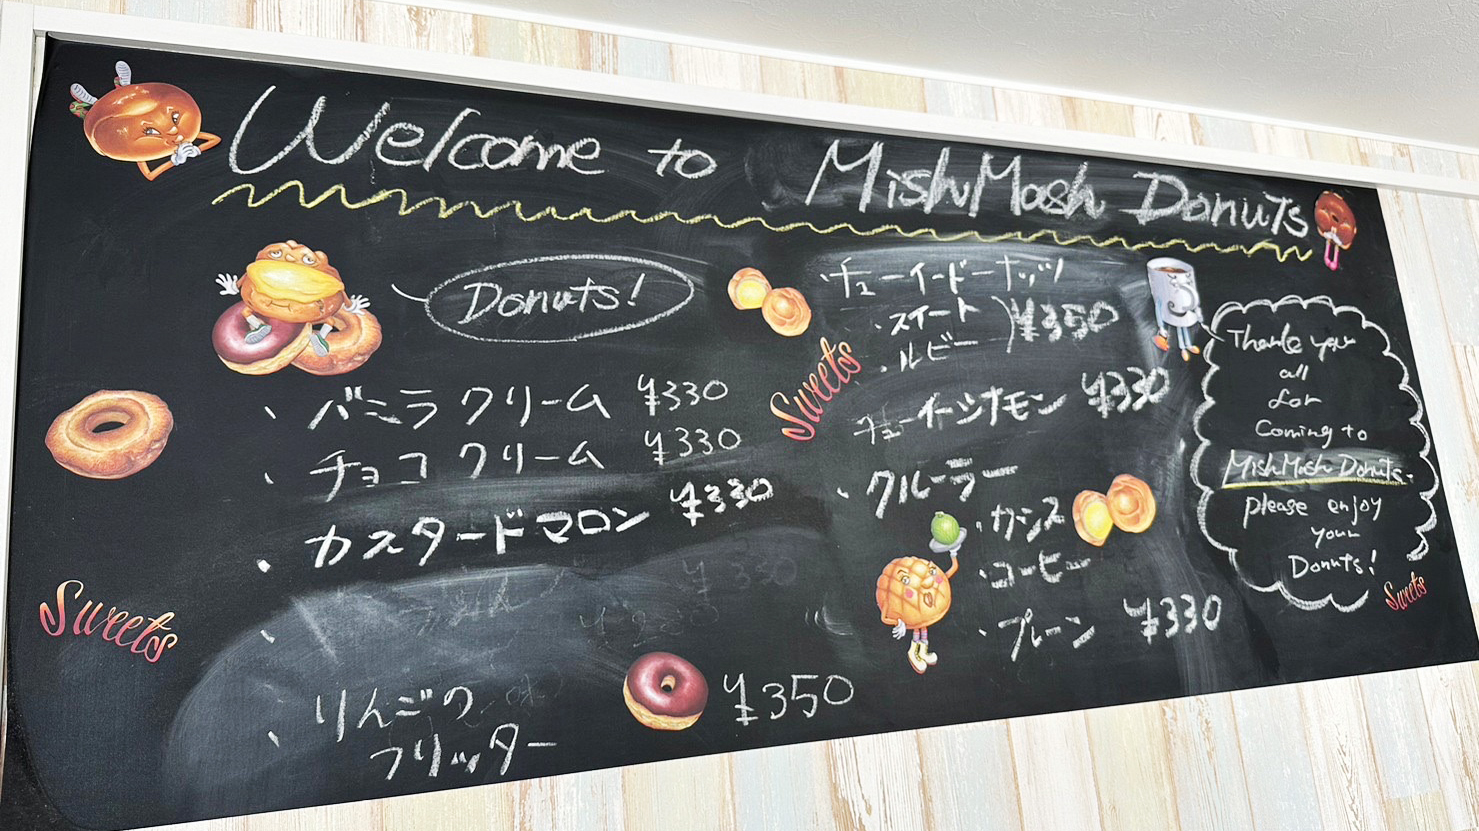 Welcome to MishMash Donuts
Donuts!
・バニラクリーム ¥330
・チョコクリーム ¥330
・カスタードマロン ¥330
¥330
・りんごの
フリッター ¥350
Sweets
Sweets
・チューイードーナッツ
・スイート
・ルビー
¥350
チューイーシナモン ¥330
・クルーラー
・カシス
・コーヒー
・プレーン ¥330
Thank you
all
for
Coming to
MishMash Donuts.
please enjoy
your
Donuts!
Sweets